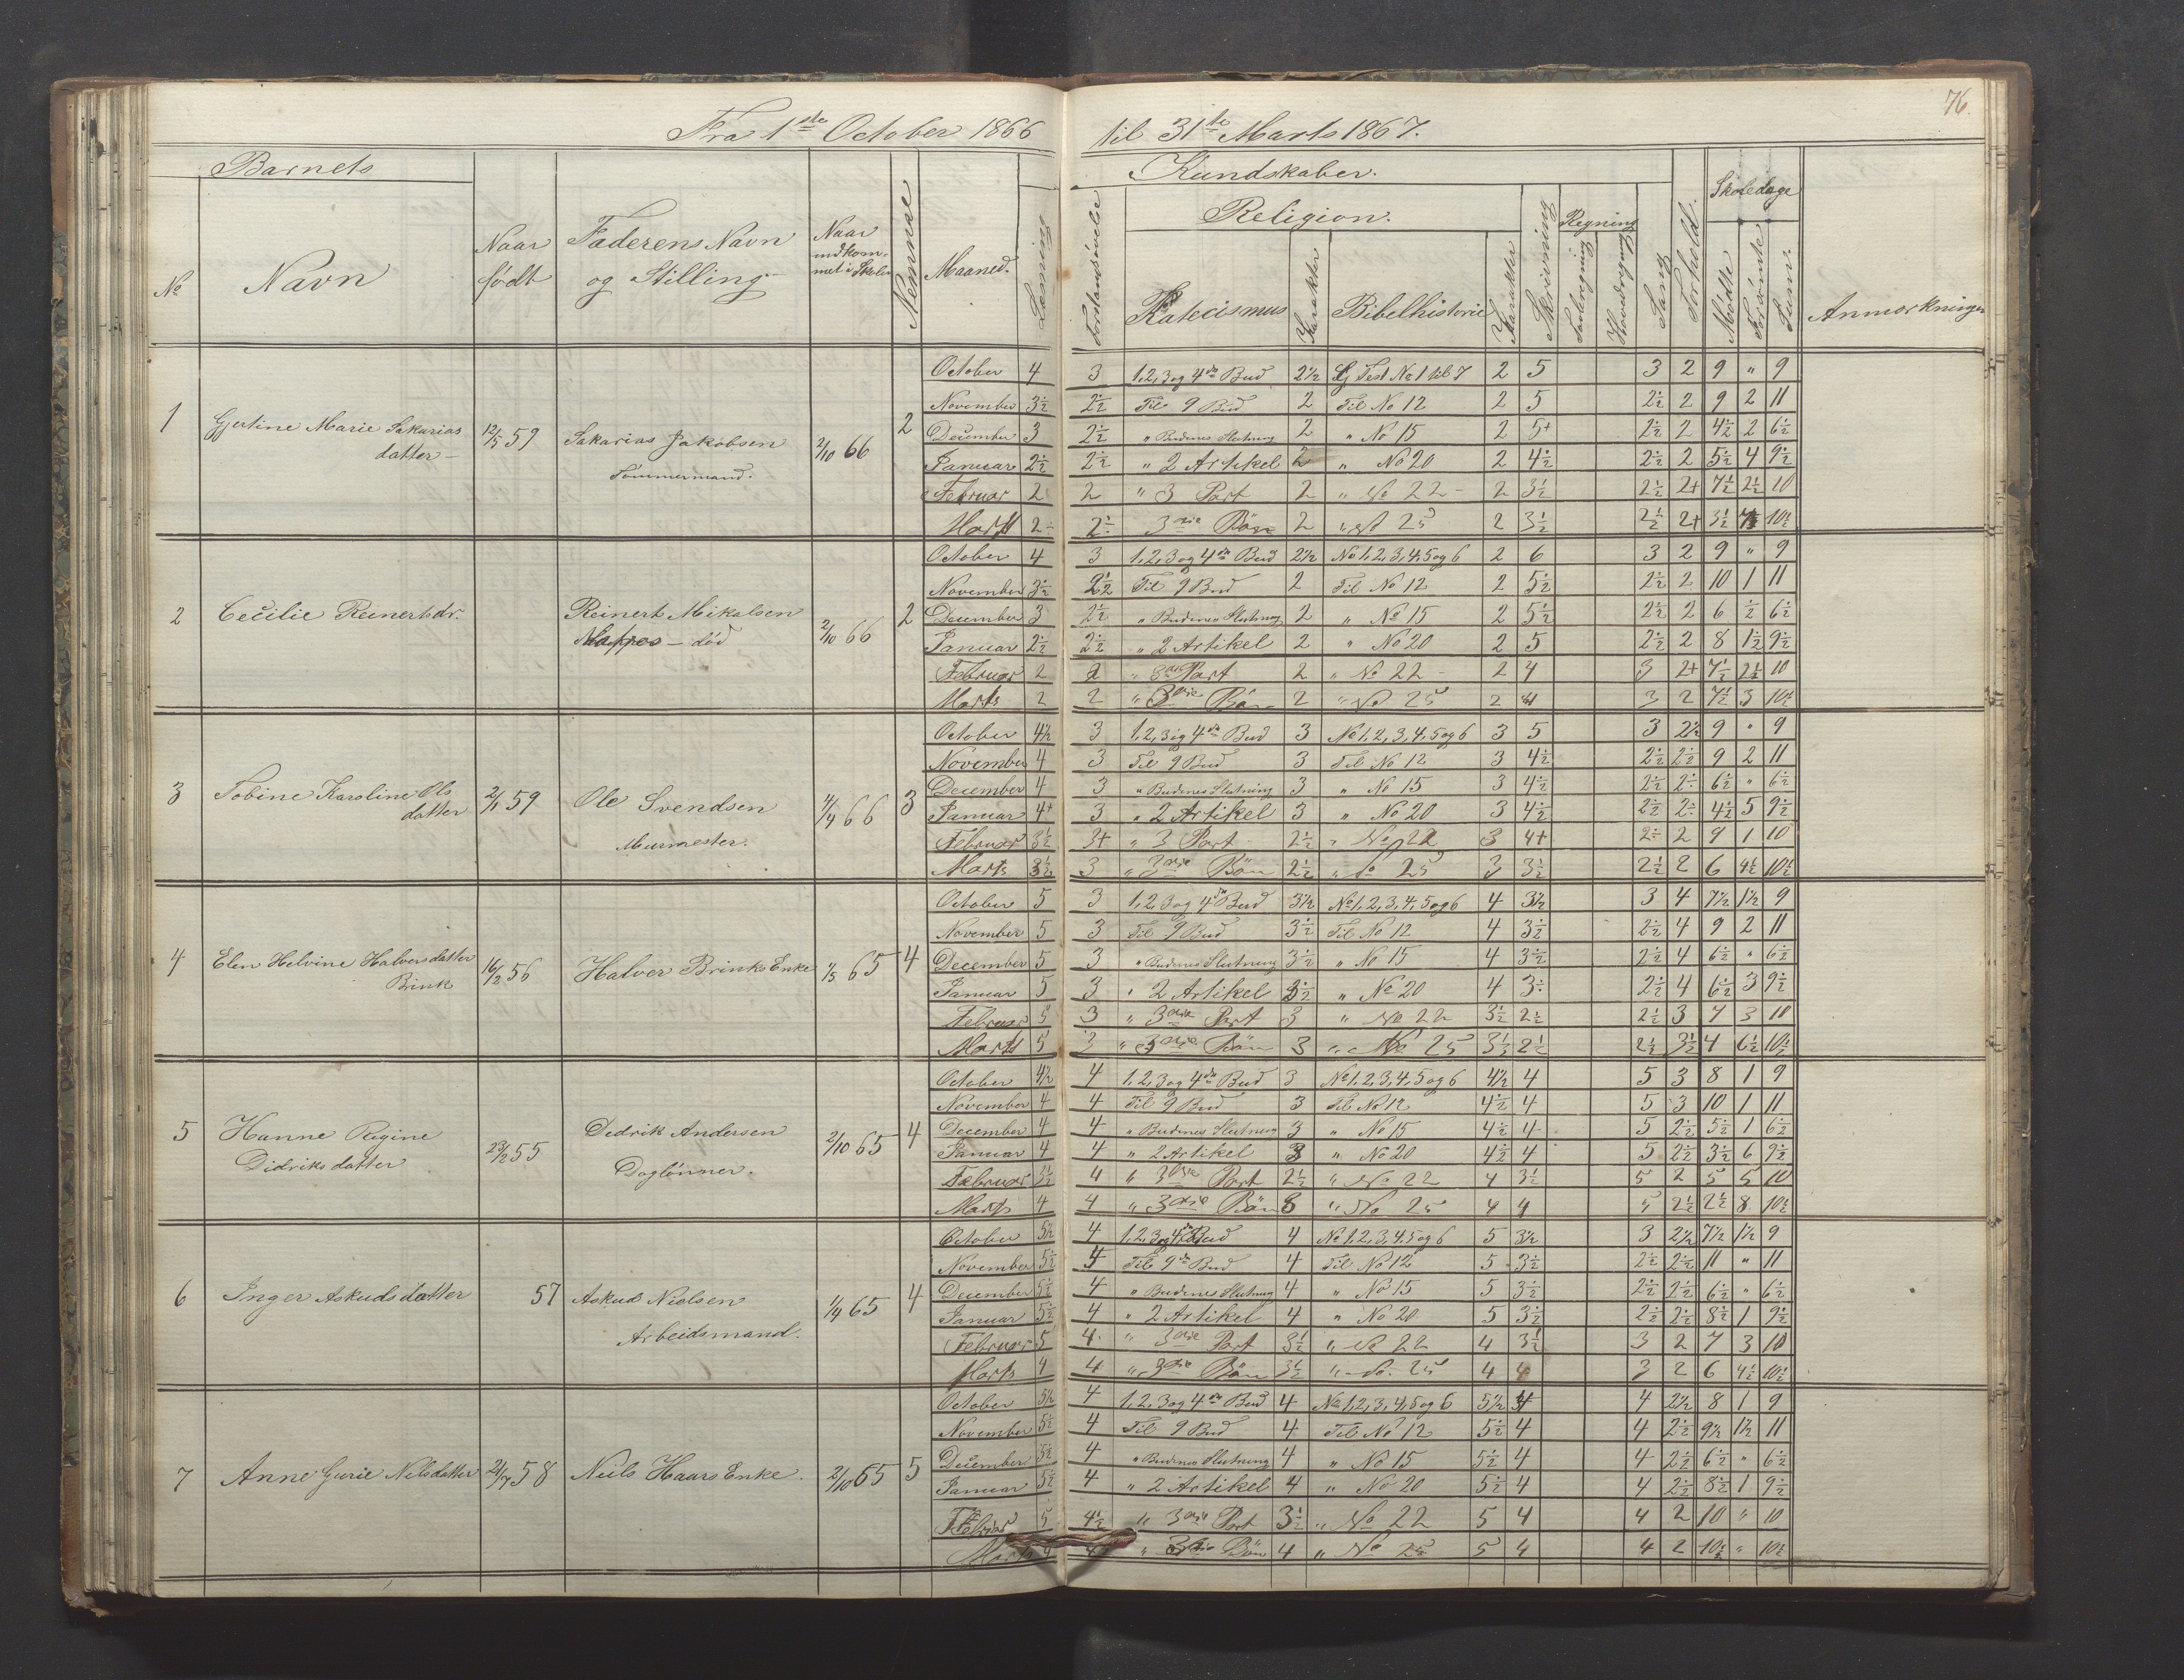 76.
Fra 1ste October 1866 til 31te Marts 1867.
Barnets
Kundskaber.
Skoledage
Religion.
Regning
No Navn Naar født Faderens Navn og Stilling Naar indkommet i Skolen Nemme Maaned. Læsning Forstandsøvelse Katecismus Karakter Bibelhistorie Karakter Skrivning Tavleregning Hovedregning Sang Forhold. Mødte Forsømte Sum. Anmærkninger
1 Gjertine Marie Sakarias datter 12/5 59 Sakarias Jakobsen Tømmermand. 2/10 66 2
October 4 3 1, 2, 3 og 4de Bud 2 1/2 Gj Test No 1 til 7 2 5 3 2 9 " 9
November 3 1/2 2 1/2 Til 9 Bud 2 Til No 12 2 5 2 1/2 2 9 2 11
December 3 2 1/2 " Budenes Slutning 2 " No 15 2 5+ 2 1/2 2 4 1/2 2 6 1/2
Januar 2 1/2 2 1/2 " 2 Artikel 2 " No 20 2 4 1/2 2 1/2 2 5 1/2 4 9 1/2
Februar 2 2 " 3 Part 2 " No 22 2 3 1/2 2 1/2 2+ 7 1/2 2 1/2 10
Marts 2÷ 2÷ 3die Bøn 2 " No 25 2 3 1/2 2 1/2 2+ 3 1/2 7 10 1/2
2 Cecilie Reinertsdr. Reinert Mikalsen – død 2/10 66 2
October 4 3 1, 2, 3 og 4de Bud 2 1/2 No 1, 2, 3, 4, 5 og 6 2 6 3 2 9 " 9
November 3 1/2 2 1/2 Til 9 Bud 2 Til No 12 2 5 1/2 2 1/2 2 10 1 11
December 3 2 1/2 " Budenes Slutning 2 " No 15 2 5 1/2 2 1/2 2 6 1/2 6 1/2
Januar 2 1/2 2 1/2 " 2 Artikel 2 " No 20 2 5 2 1/2 2 8 1 1/2 9 1/2
Februar 2 2 " 3die Part 2 " No 22 2 4 3 2+ 7 1/2 2 1/2 10
Marts 2 2 " 3die Bøn 2 " No 25 2 4 3 2 7 1/2 3 10 1/2
3 Tobine Karoline Ols datter 2/1 59 Ole Svendsen Murmester. 4/4 66 3
October 4 1/2 3 1, 2, 3 og 4de Bud 3 No 1, 2, 3, 4, 5 og 6 3 5 3 2 1/2 9 " 9
November 4 3 Til 9 Bud 3 Til No 12 3 4 1/2 2 1/2 2 1/2 9 2 11
December 4 3 " Budenes Slutning 3 " No 15 3 4 1/2 2 1/2 2÷ 6 1/2 " 6 1/2
Januar 4+ 3 " 2 Artikel 3 " No 20 3 4 1/2 2 1/2 2÷ 4 1/2 5 9 1/2
Februar 3 1/2 3+ " 3 Part 2 1/2 " No 22 3 4+ 2÷ 2 9 1 10
Marts 3 1/2 3 " 3die Bøn 2 1/2 " No 25 3 3 1/2 2 1/2 2 6 4 1/2 10 1/2
4 Elen Helvine Halvorsdatter Brink 16/2 56 Halvor Brinks Enke 1/5 65 4
October 5 3 1, 2, 3 og 4de Bud 3 1/2 No 1, 2, 3, 4, 5 og 6 4 3 1/2 3 4 7 1/2 1 1/2 9
November 5 3 Til 9 Bud 3 1/2 Til No 12 4 3 1/2 2 1/2 4 9 2 11
December 5 3 " Budenes Slutning 3 1/2 " No 15 4 3 1/2 2 1/2 4 6 1/2 " 6 1/2
Januar 5 3 " 2 Artikel 3 1/2 " No 20 4 3÷ 2 1/2 4 6 1/2 3 9 1/2
Februar 5 3 " 3die Part 3 " No 22 3 1/2 2 1/2 2 1/2 3 7 3 10
Marts 5 3 " 3die Bøn 3 " No 25 3 1/2 2 1/2 2 1/2 3 1/2 4 6 1/2 10 1/2
5 Hanne Regine Didriksdatter 23/2 55 Dedrik Andersen Daglønner. 2/10 65 4
October 4 1/2 4 1, 2, 3 og 4de Bud 3 No 1, 2, 3, 4, 5 og 6 4 1/2 4 5 3 8 1 9
November 4 4 Til 9 Bud 3 Til No 12 4 1/2 4 5 3 10 1 11
December 4 4 " Budenes Slutning 3 " No 15 4 1/2 4 5 2 1/2 5 1/2 1 6 1/2
Januar 4 4 " 2 Artikel 3 " No 20 4 1/2 4 5 2 1/2 3 1/2 6 9 1/2
Februar 3 1/2 4 " 3die Part 2 1/2 " No 22 4 3 1/2 5 2 5 5 10
Marts 4 4 " 3die Bøn 3 " No 25 4 4 5 2 1/2 2 1/2 8 10 1/2
6 Inger Askudsdatter 57 Askud Nielsen Arbeidsmand. 1/4 65 4
October 5 1/2 4 1, 2, 3 og 4de Bud 4 No 1, 2, 3, 4, 5 og 6 5 3 1/2 3 2 1/2 7 1/2 1 1/2 9
November 5 1/2 4 Til 9de Bud 4 Til No 12 5 3 1/2 2 1/2 2 1/2 11 " 11
December 5 1/2 4 " Budenes Slutning 4 " No 15 5 3 1/2 2 1/2 2 1/2 6 1/2 " 6 1/2
Januar 5 1/2 4 " 2 Artikel 4 " No 20 5 3 1/2 2 1/2 2 1/2 8 1/2 1 9 1/2
Februar 5 4 " 3die Part 3 1/2 " No 22 4 3 1/2 3 2 7 3 10
Marts 4 4 " 3die Bøn 3 1/2 " No. 25 4 4 3 2 6 4 1/2 10 1/2
7 Anne Gurie Nilsdatter 21/7 58 Niels Haars Enke. 2/10 65 5
October 5 1/2 4 1, 2, 3 og 4de Bud 4 No 1, 2, 3, 4, 5 og 6 5 1/2 4 4 2 1/2 8 1 9
November 5 1/2 4 Til 9 Bud 4 Til No 12 5 1/2 4 4 2 1/2 9 1/2 1 1/2 11
December 5 1/2 4 " Budenes Slutning 4 " No 15 5 1/2 4 4 2 1/2 6 1/2 " 6 1/2
Januar 5 1/2 4 " 2 Artikel 4 " No 20 5 1/2 4 4 2 1/2 8 1/2 1 9 1/2
Februar 5 4 1/2 " 3die Part 3 1/2 " No 22 5 4 4 2 10 " 10
Marts " 3die Bøn 4 " No 25 5 4 4 2 10 1/2 " 10 1/2